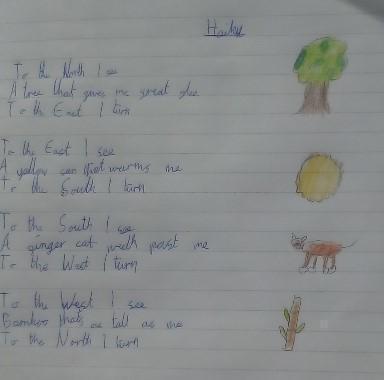 Haiku
To the North I see
A tree that gives me great glee
To the East I turn
To the East I see
A yellow sun that warms me
To the South I turn
To the South I see
A ginger cat walk past me
To the West I turn
To the West I see
Bamboo thats as tall as me
To the North I turn